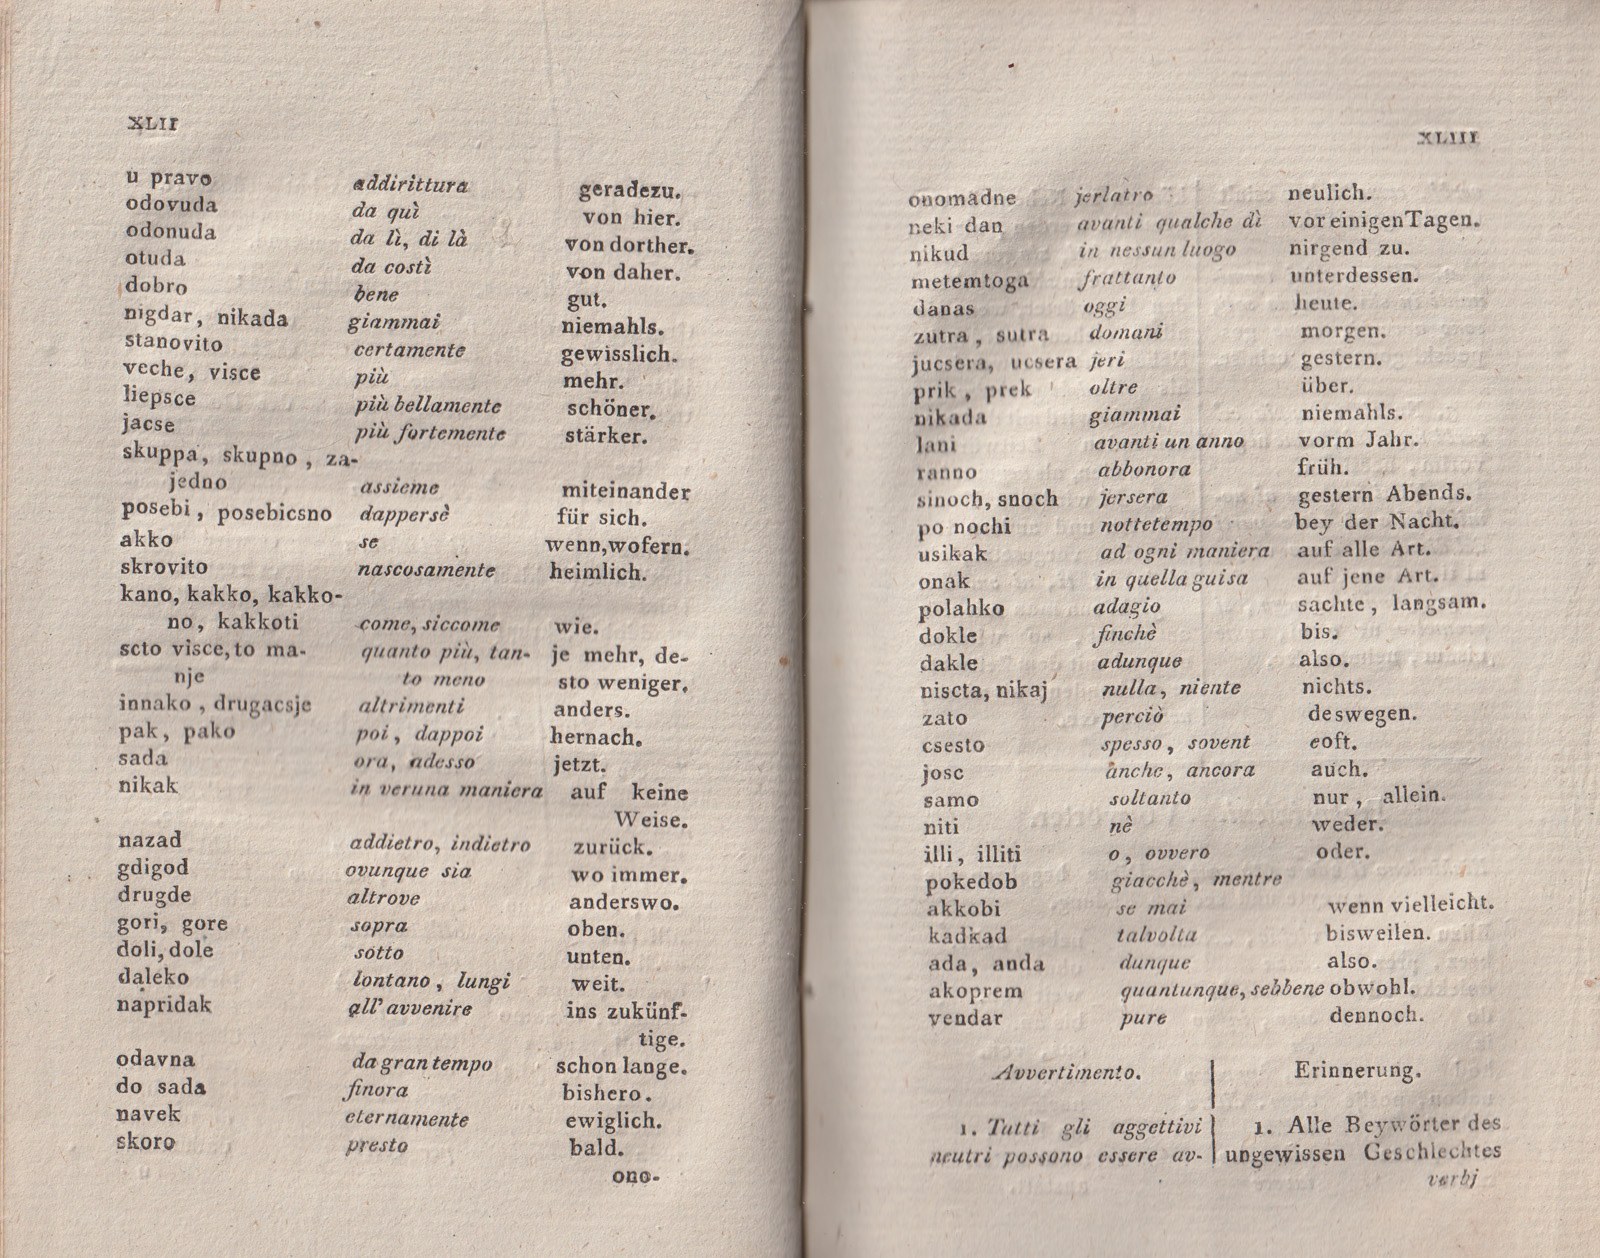 XLII
u pravo addirittura geradezu.
odovuda da quì von hier.
odonuda da lì, di là von dorther.
otuda da costì von daher.
dobro bene gut.
nigdar, nikada giammai niemahls.
stanovito certamente gewisslich.
veche, visce più mehr.
liepsce più bellamente schöner.
jacse più fortemente stärker.
skuppa, skupno, za-
jedno assieme miteinander
posebi, posebicsno dappersè für sich.
akko se wenn, wofern.
skrovito nascosamente heimlich.
kano, kakko, kakko-
no, kakkoti come, siccome wie.
scto visce, to ma- quanto più, tan- je mehr, de-
nje to meno sto weniger.
innako, drugacsje altrimenti anders.
pak, pako poi, dappoi hernach.
sada ora, adesso jetzt.
nikak in veruna maniera auf keine
Weise.
nazad addietro, indietro zurück.
gdigod ovunque sia wo immer.
drugde altrove anderswo.
gori, gore sopra oben.
doli, dole sotto unten.
daleko lontano, lungi weit.
napridak all' avvenire ins zukünf-
tige.
odavna da gran tempo schon lange.
do sada finora bishero.
navek eternamente ewiglich.
skoro presto bald.
ono-
XLIII
onomadne jerlatro neulich.
neki dan avanti qualche dì vor einigen Tagen.
nikud in nessun luogo nirgend zu.
metemtoga frattanto unterdessen.
danas oggi heute.
zutra, sutra domani morgen.
jucsera, ucsera jeri gestern.
prik, prek oltre über.
nikada giammai niemahls.
lani avanti un anno vorm Jahr.
ranno abbonora früh.
sinoch, snoch jersera gestern Abends.
po nochi nottetempo bey der Nacht.
usikak ad ogni maniera auf alle Art.
onak in quella guisa auf jene Art.
polahko adagio sachte, langsam.
dokle finchè bis.
dakle adunque also.
niscta, nikaj nulla, niente nichts.
zato perciò deswegen.
csesto spesso, sovent eoft.
josc anche, ancora auch.
samo soltanto nur, allein.
niti nè weder.
illi, illiti o, ovvero oder.
pokedob giacchè, mentre
akkobi se mai wenn vielleicht.
kadkad talvolta bisweilen.
ada, anda dunque also.
akoprem quantunque, sebbene obwohl.
vendar pure dennoch.
Avvertimento. Erinnerung.
1. Tutti gli aggettivi 1. Alle Beywörter des
neutri possono essere av- ungewissen Geschlechtes
verbj